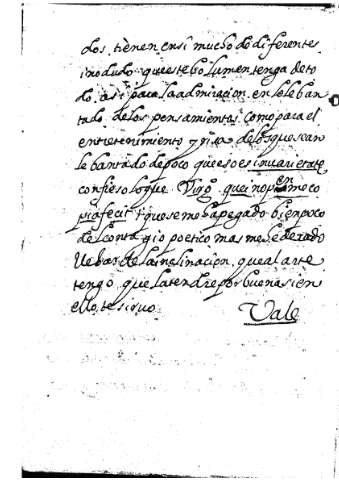 dos. tienen ensi mucho do diferentes
i no dudo que este bolumen tenga de to
do. asi para la admiracion. en lo leban
tado de los pensamientos. como para el
entretenimiento y risa de los que sean
lebantado de poco que eso es in varietate
confieso lo que Virgo. que inopem me co
pia fecit i que se me ha pegado bien poco
del contagio poetico mas me he dejado
llebar de la inclinacion. que al arte
tengo que la tendre por buena si en
ello. te sirvo Vale